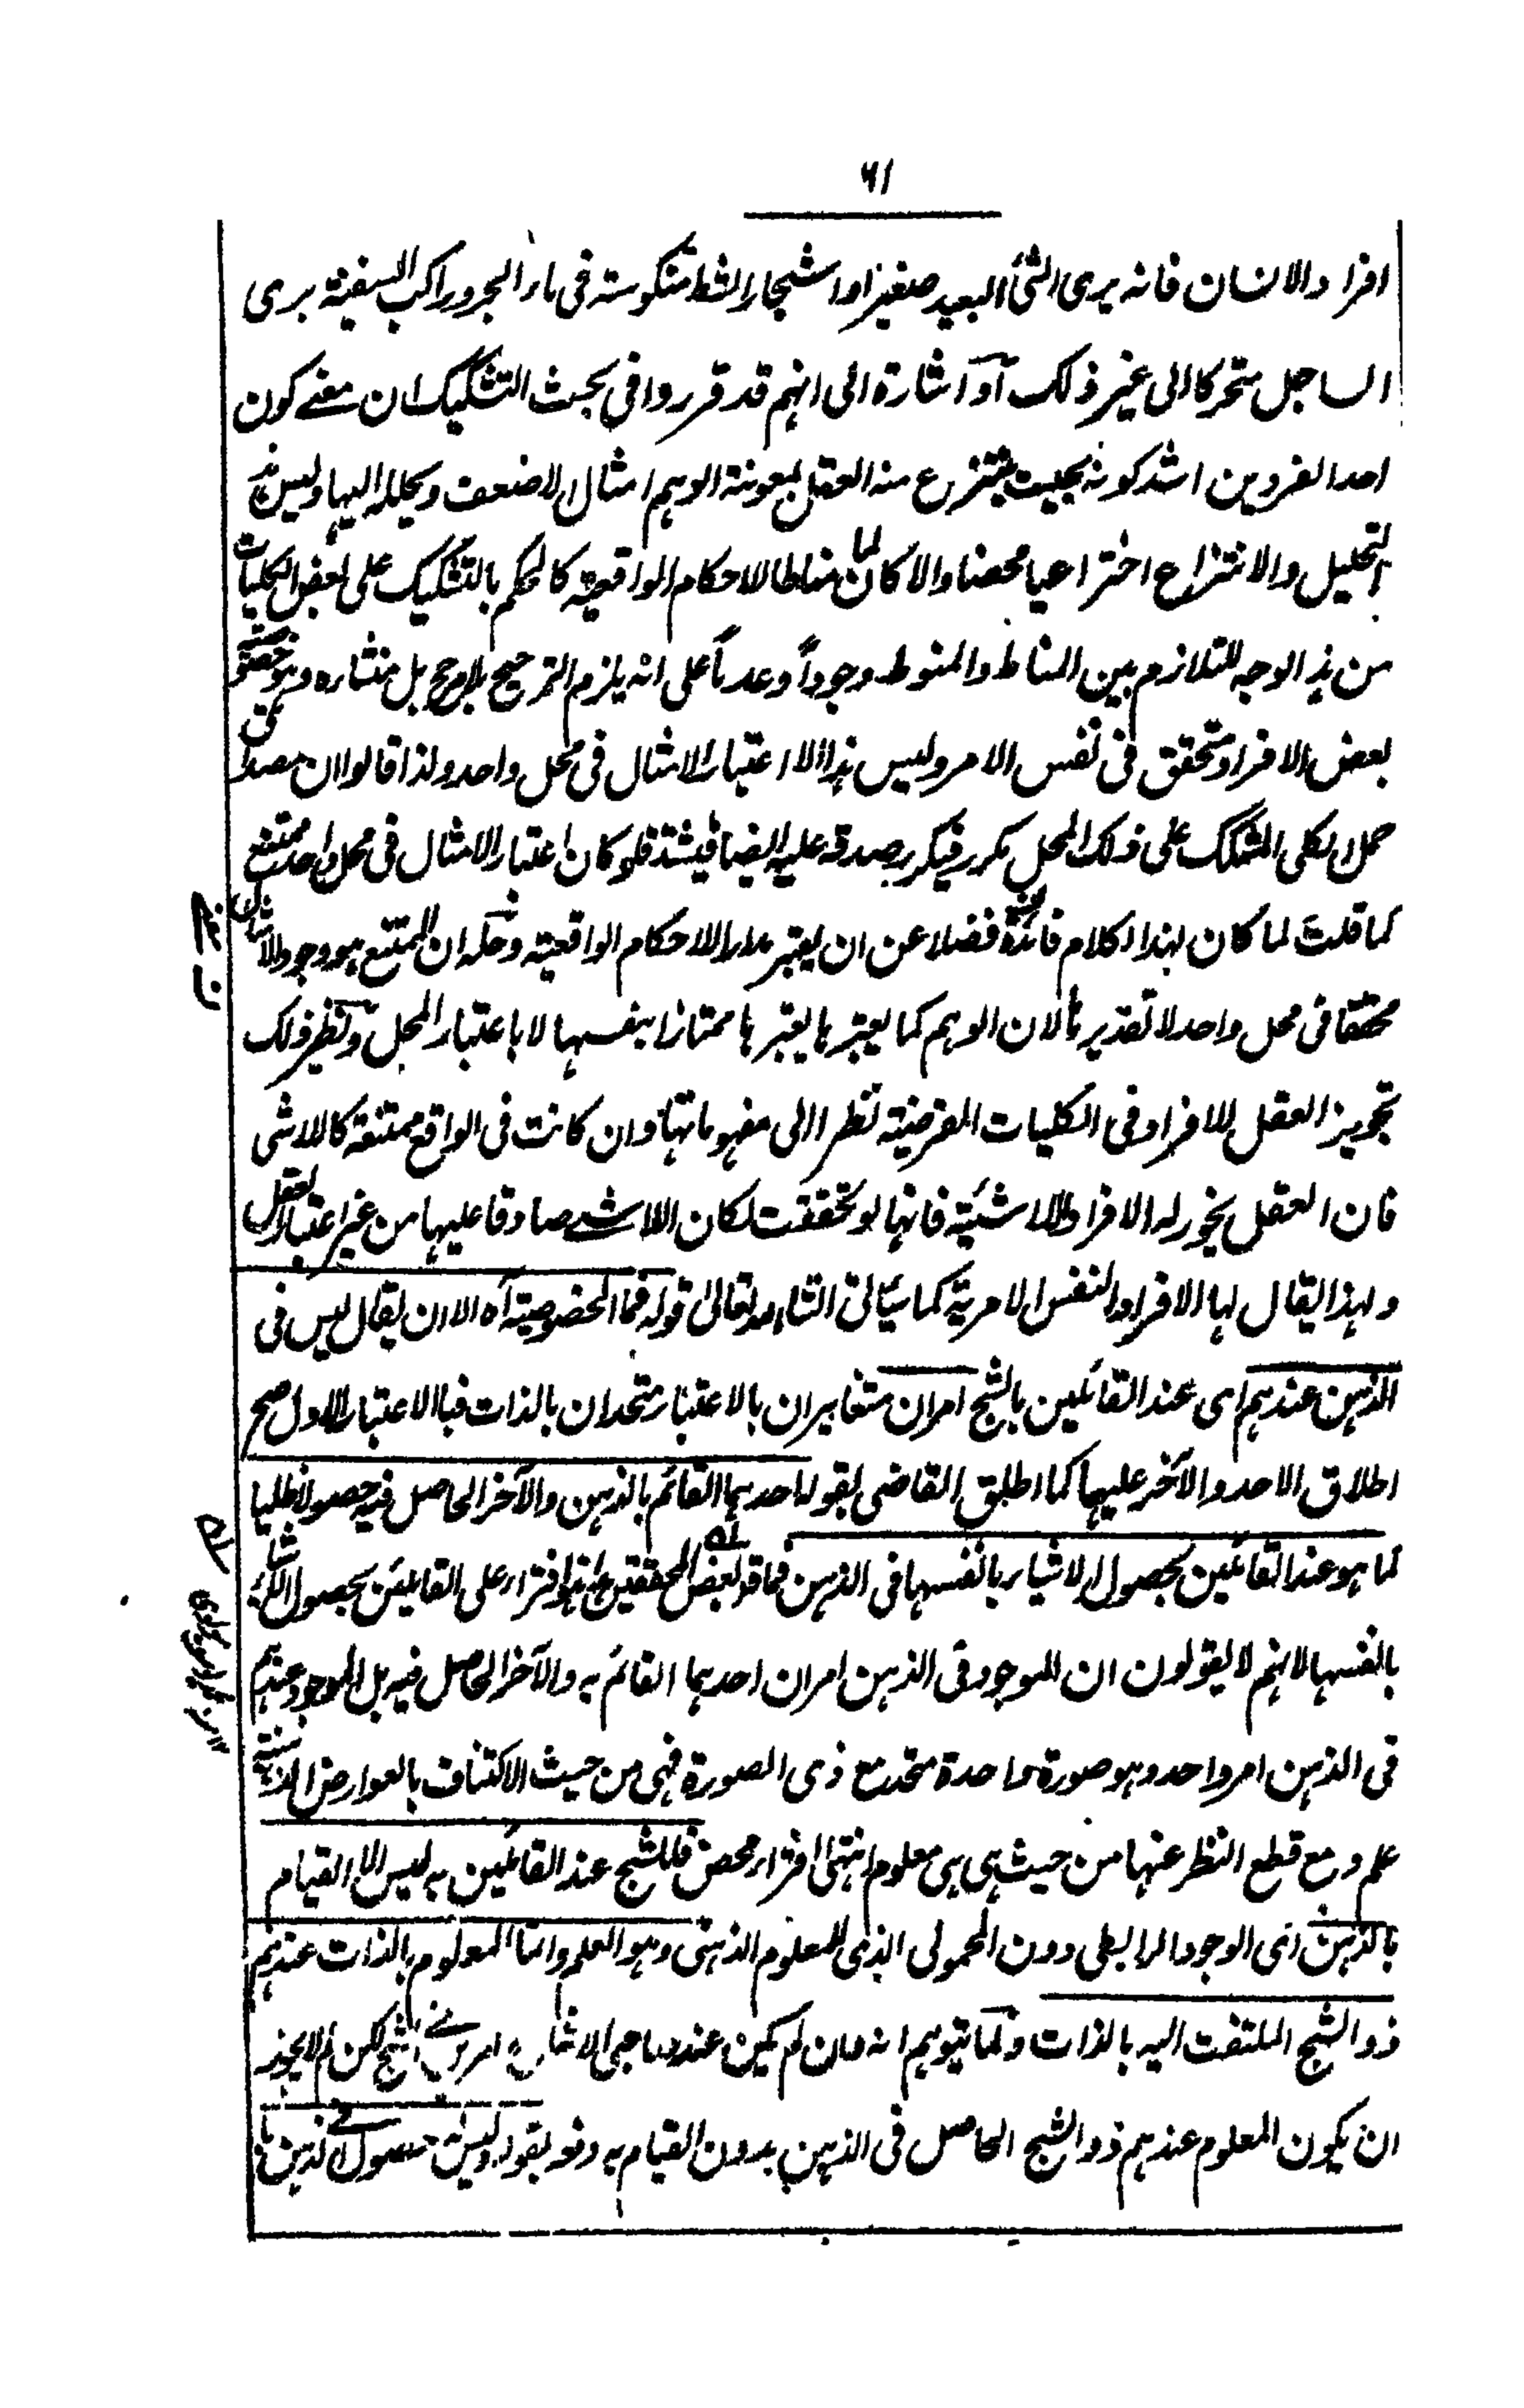 ٦١
افراد الانسان فانه يرى الشئ البعيد صغيرا واشجار الشط منكوسته فى ماء البحر وراكب السفينة يرى
الساحل متحركا الى غير ذلك او اشارة الى انهم قد قرروا فى بحث التشكيك ان معنے كون
احد الفردين اشد كونه بحيث ينتزع منه العقل بمعونة الوهم امثال الاضعف ويحلله اليها وليس هذا
التحليل والانتزاع اختراعيا محضا والا لما كان مناطا لاحكام الواقعية كالحكم بالتشكيك على بعض الكليات
من هذا الوجه للتلازم بين المناط والمنوط وجوداً وعدماً على انه يلزم الترجيح بلا مرجح بل منشاره وهو خصوصية
بعض الافراد متحقق فى نفس الامر وليس هذا الا اعتبار الامثال فى محل واحد ولذا قالوا ان مصداق
حمل الكلى المشكك على ذلك المحل مكرر فيكرر صدقه عليه ايضا فيشتد فلو كان اعتبار الامثال فى محل واحد ممتنع
كما قلت لما كان لهذا الكلام فائدة فضلا عن ان يعتبر مدار الاحكام الواقعية وحله ان الممتنع هو وجود الامثال
محققا فى محل واحد لا تقديرها لان الوهم كما يعتبرها يعتبرها ممتازا بنفسها لا باعتبار المحل ونظير ذلك
تجويز العقل للافراد فى الكليات الفرضية نظرا الى مفهوماتها وان كانت فى الواقع ممتنعة كاللاشى
فان العقل يجوز له الافراد اللاشيئية فانها لو تحققت لكان اللاشے صادقا عليها من غير اعتبار العقل
ولهذا يقال لها الافراد النفس الامرية كما سيأتى انشاء الله تعالى قوله فما الخصوصية آه الا ان يقال ليس فى
الذهن عندهم اى عند القائلين بالشبح امران متغايران بالاعتبار متحدان بالذات فبالاعتبار الاول صح
اطلاق الاحد والآخر عليها كما اطلق القاضى بقوله احدهما القائم بالذهن والآخر الحاصل فيه حصولا ظليا
كما هو عند القائلين بحصول الاشياء بانفسها فى الذهن فما قد بعض المحققين هذا افتراء على القائلين بحصول الاشياء
بانفسها لانهم لا يقولون ان الموجود فى الذهن امران احدهما القائم به والآخر الحاصل فيه بل الموجود عندهم
فى الذهن امر واحد وهو صورة واحدة متحد مع ذى الصورة فهى من حيث الاكتناف بالعوارض الذهنية
علم ومع قطع النظر عنها من حيث هى هى معلوم انتهى افتراء محض فللشبح عند القائلين به ليس الا القيام
بالذهن اى الوجود الرابطى دون المحمولى الذى للمعلوم الذهنى وهو العلم واما المعلوم بالذات عندهم
ذو الشبح الملتفت اليه بالذات ولما يتوهم انه وان لم يكن عند الشبح لكن لم لا يجوز
ان يكون المعلوم عندهم ذو الشبح الحاصل فى الذهن بدون القيام به دفعه بقوله وليس له حصول فے الذهن